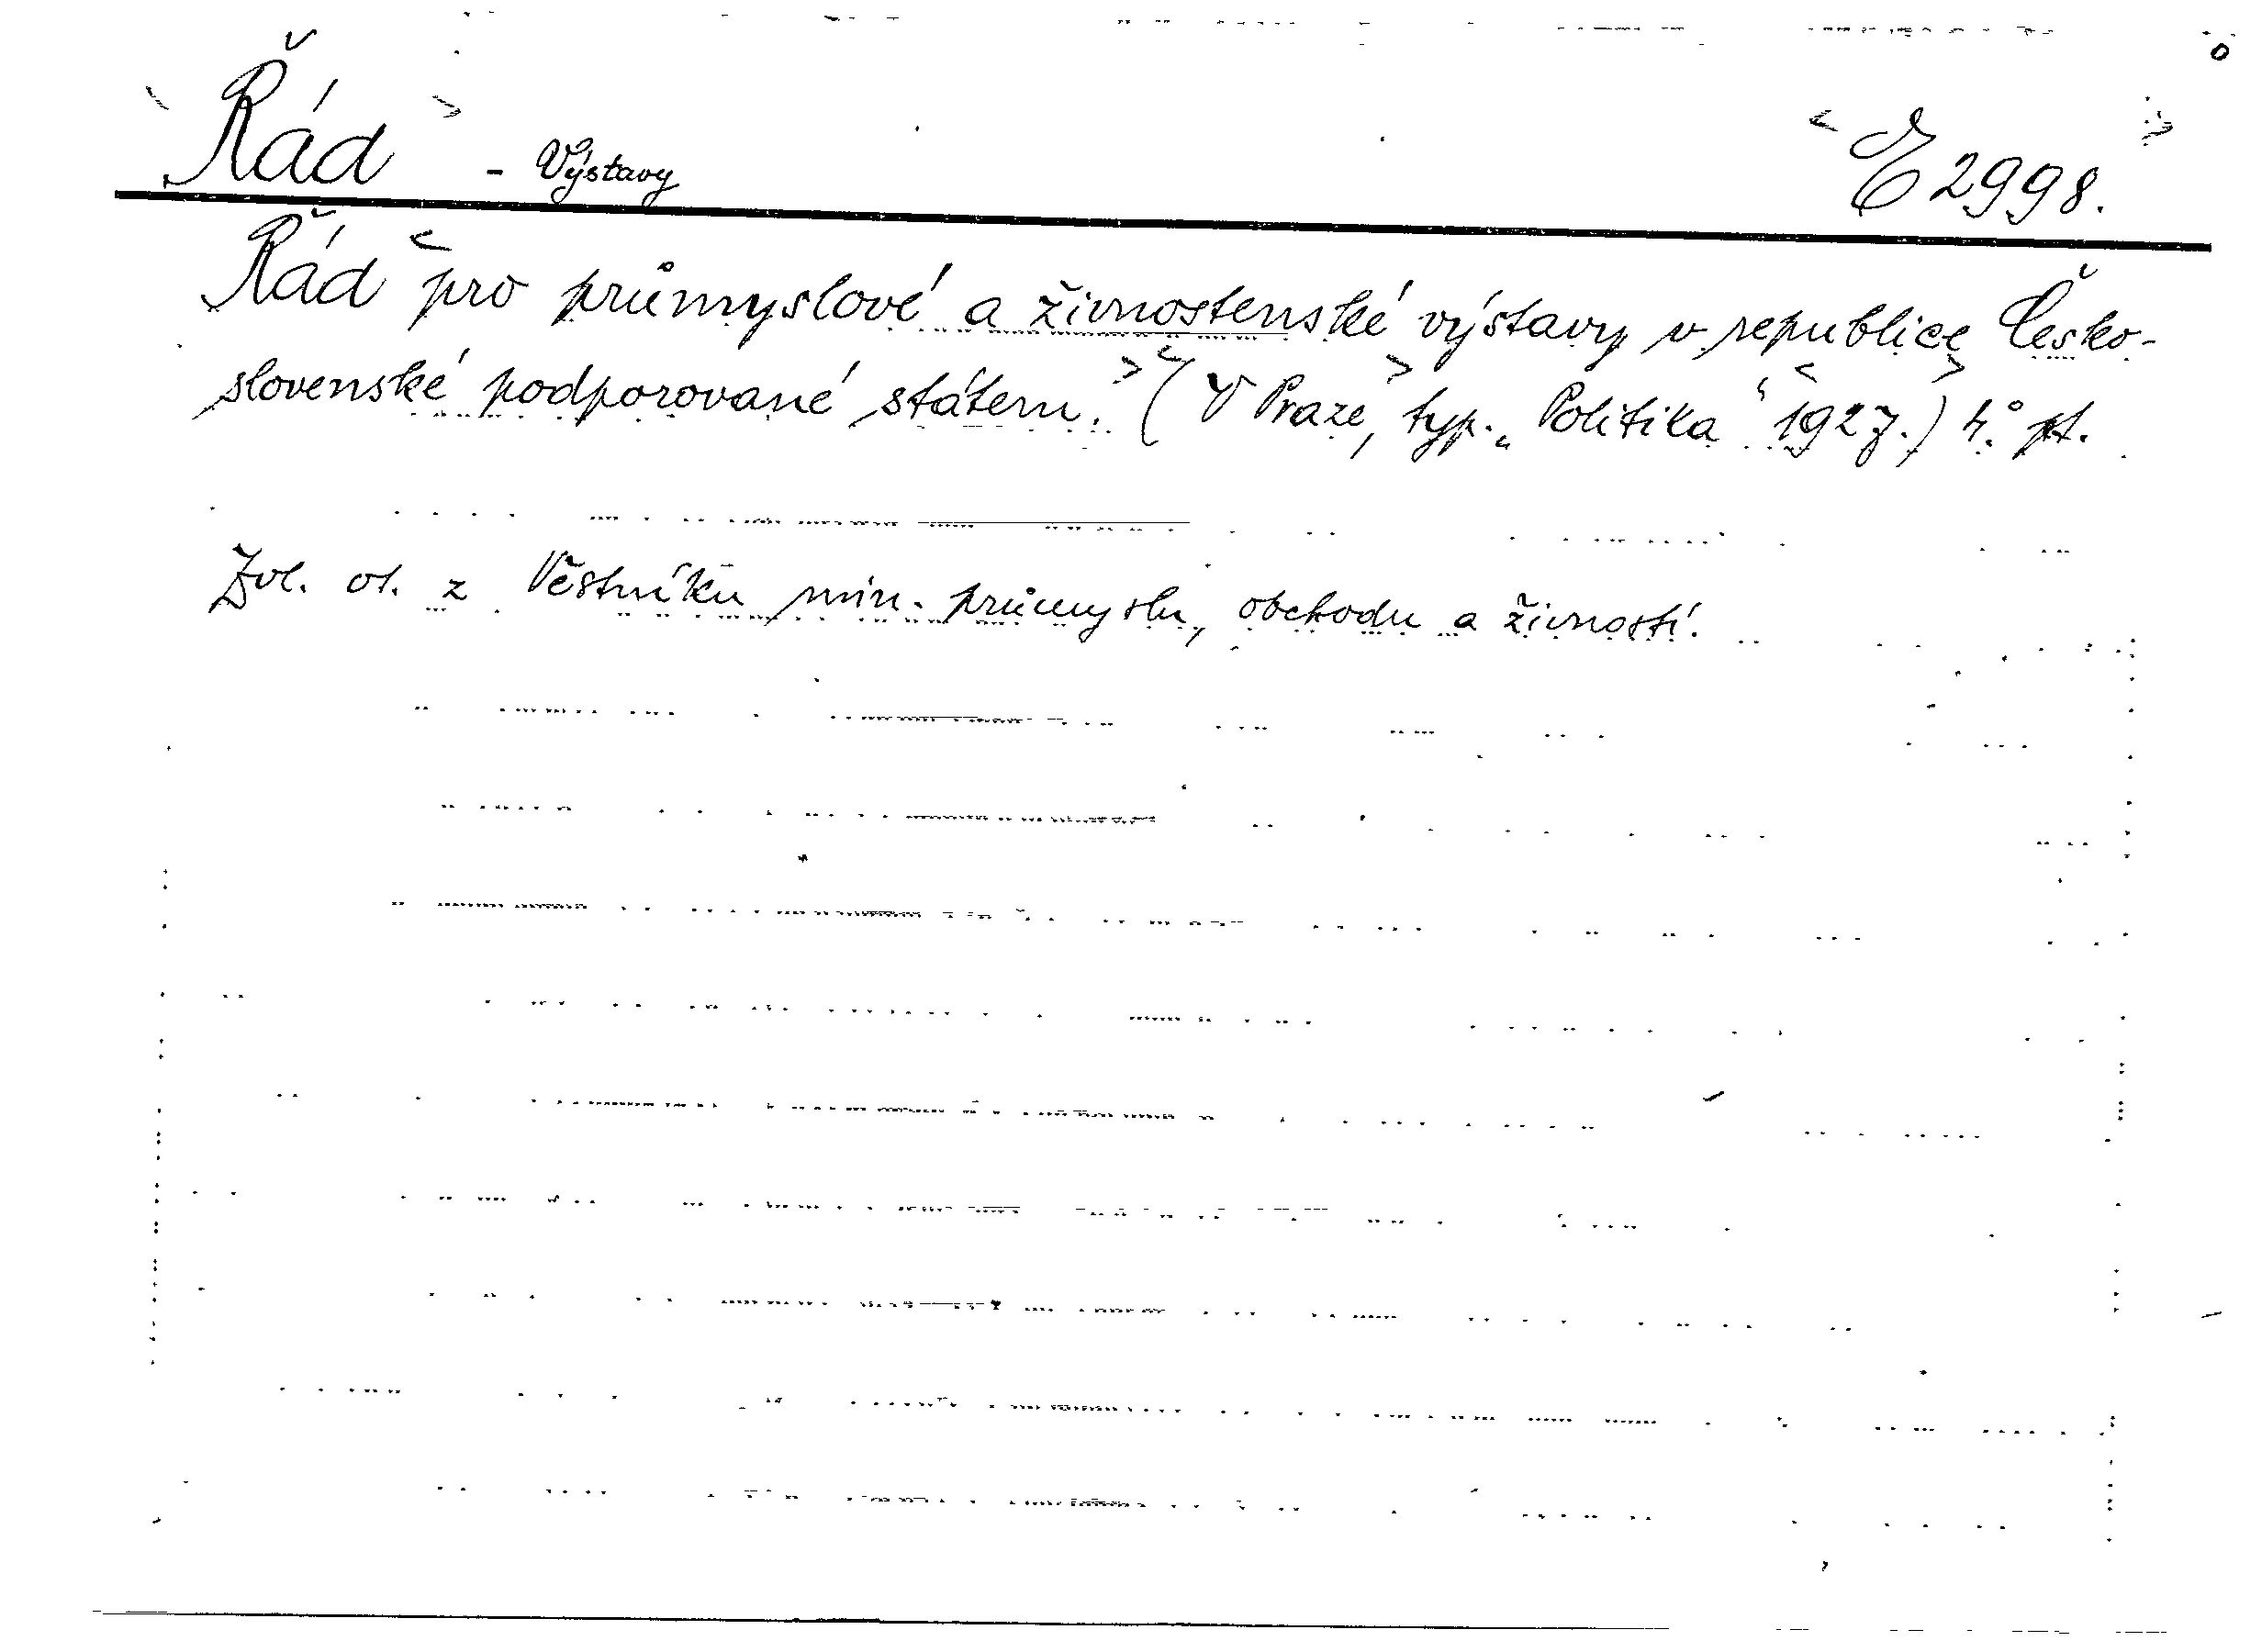 Řád - Výstavy E 2998.
Řád pro průmyslové a živnostenské výstavy v republice Česko-
slovenské podporované státem. (V Praze, typ. „Politika“ 1927.) 4° pt.
Zvl. ot. z Věstníku min. průmyslu, obchodu a živností.